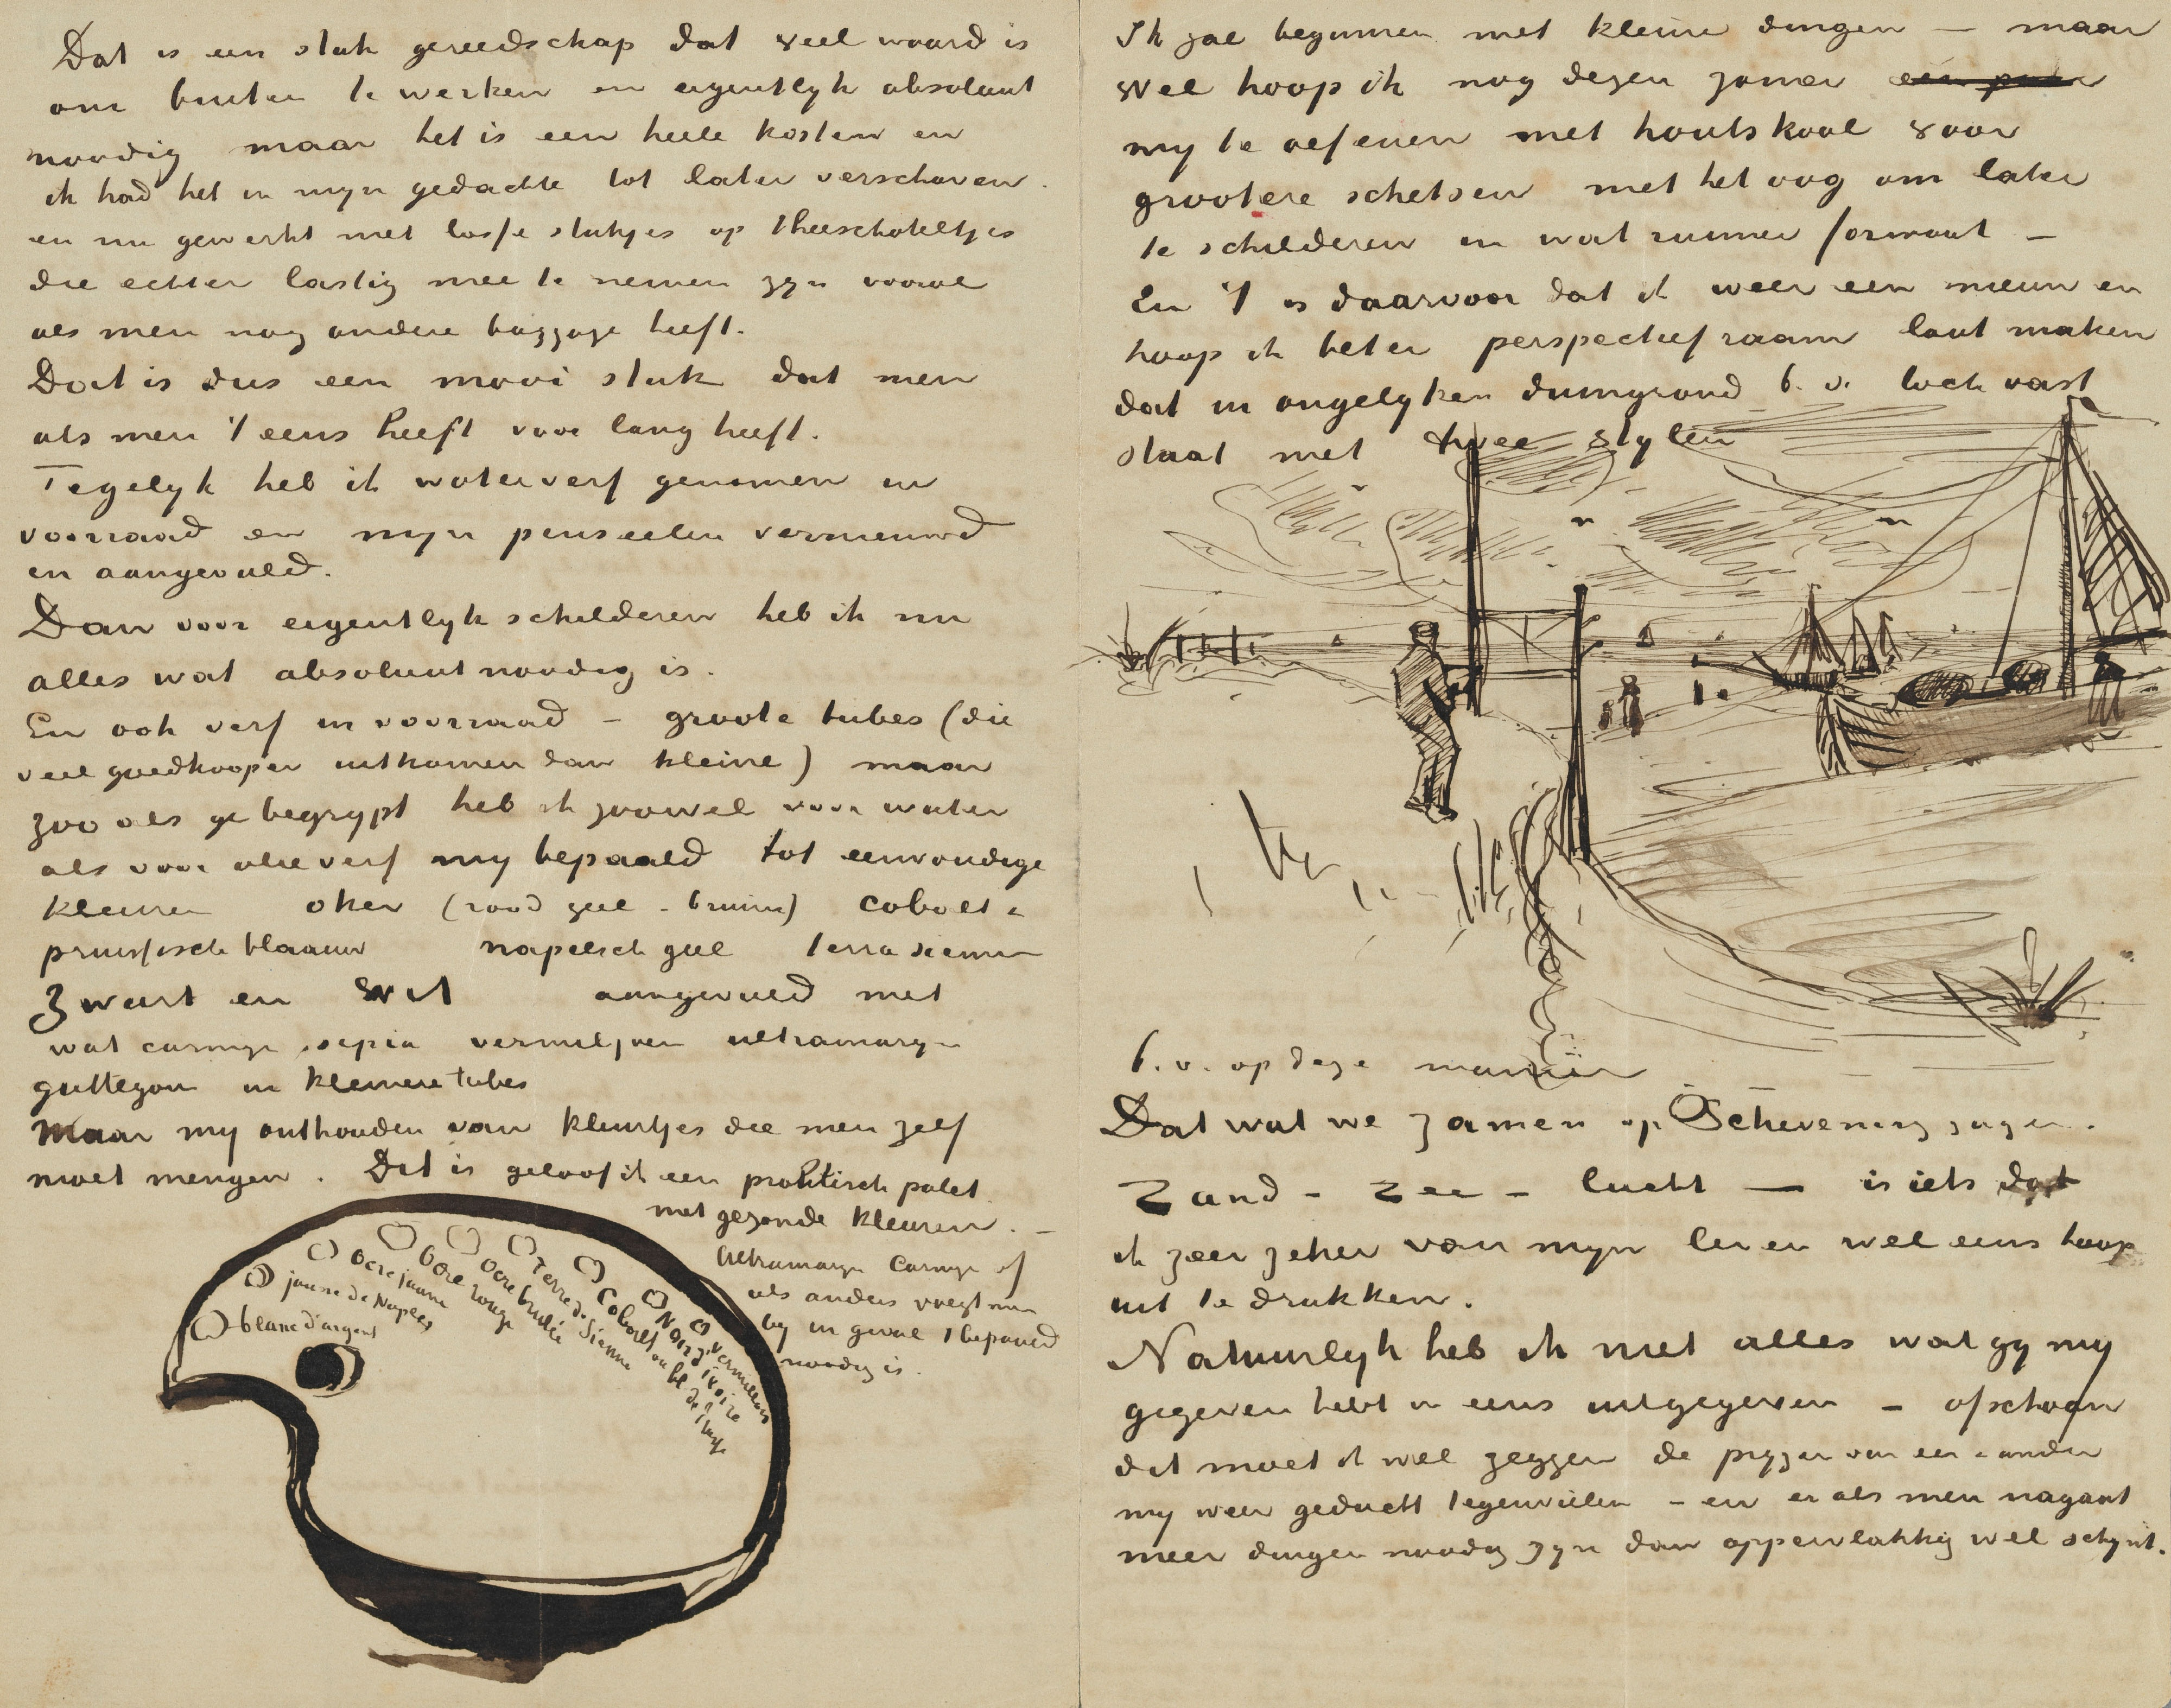 Dat is een stuk gereedschap dat veel waard is
om buiten te werken en eigentlyk absoluut
noodig maar het is een heele kosten en
ik had het in myn gedachte tot later verschoven.
en nu gewerkt met losse stukjes op theeschoteltjes
die echter lastig mee te nemen zyn vooral
als men nog andere baggage heeft.
Dat is dus een mooi stuk dat men
als men 't eens heeft voor lang heeft.
Tegelyk heb ik waterverf genomen in
voorraad en myn penseelen vernieuwd
en aangevuld.
Dan voor eigentlyk schilderen heb ik nu
alles wat absoluut noodig is.
En ook verf in voorraad – groote tubes (die
veel goedkooper uitkomen dan kleine) maar
zooals ge begrypt heb ik zoowel voor water
als voor olieverf my bepaald tot eenvoudige
kleuren oker (rood geel – bruin) cobalt &
pruissisch blaauw napelsch geel terra sienna
Zwart en wit aangevuld met
wat carmyn sepia vermiljoen ultramaryn
guttegom in kleinere tubes
Maar my onthouden van kleurtjes die men zelf
moet mengen. Dit is geloof ik een praktisch palet
met gezonde kleuren. –
Ultramaryn Carmyn of
als anders voegt men
by in geval 't bepaald
noodig is.
blanc d'argent
jaune de Naples
Ocre jaune
Ocre rouge
Ocre brulée
Terre de Sienne
Cobalt ou bl. de Prusse
Noir d'ivoire
vermillon
Ik zal beginnen met kleine dingen – maar
wel hoop ik nog dezen zomer een paar
my te oefenen met houtskool voor
grootere schetsen met het oog om later
te schilderen in wat ruimer formaat –
En 't is daarvoor dat ik weer een nieuw en
hoop ik beter perspectiefraam laat maken
dat in ongelyken duingrond b.v. toch vast
staat met twee stylen
b.v. op deze manier
Dat wat we zamen op Schevening zagen.
Zand – zee – lucht — is iets dat
ik zeer zeker van myn leven wel eens hoop
uit te drukken.
Natuurlyk heb ik niet alles wat gy my
gegeven hebt in eens uitgegeven – ofschoon
dit moet ik wel zeggen de pryzen van een & ander
my weer geducht tegenvielen – en er als men nagaat
meer dingen noodig zyn dan oppervlakkig wel schynt.